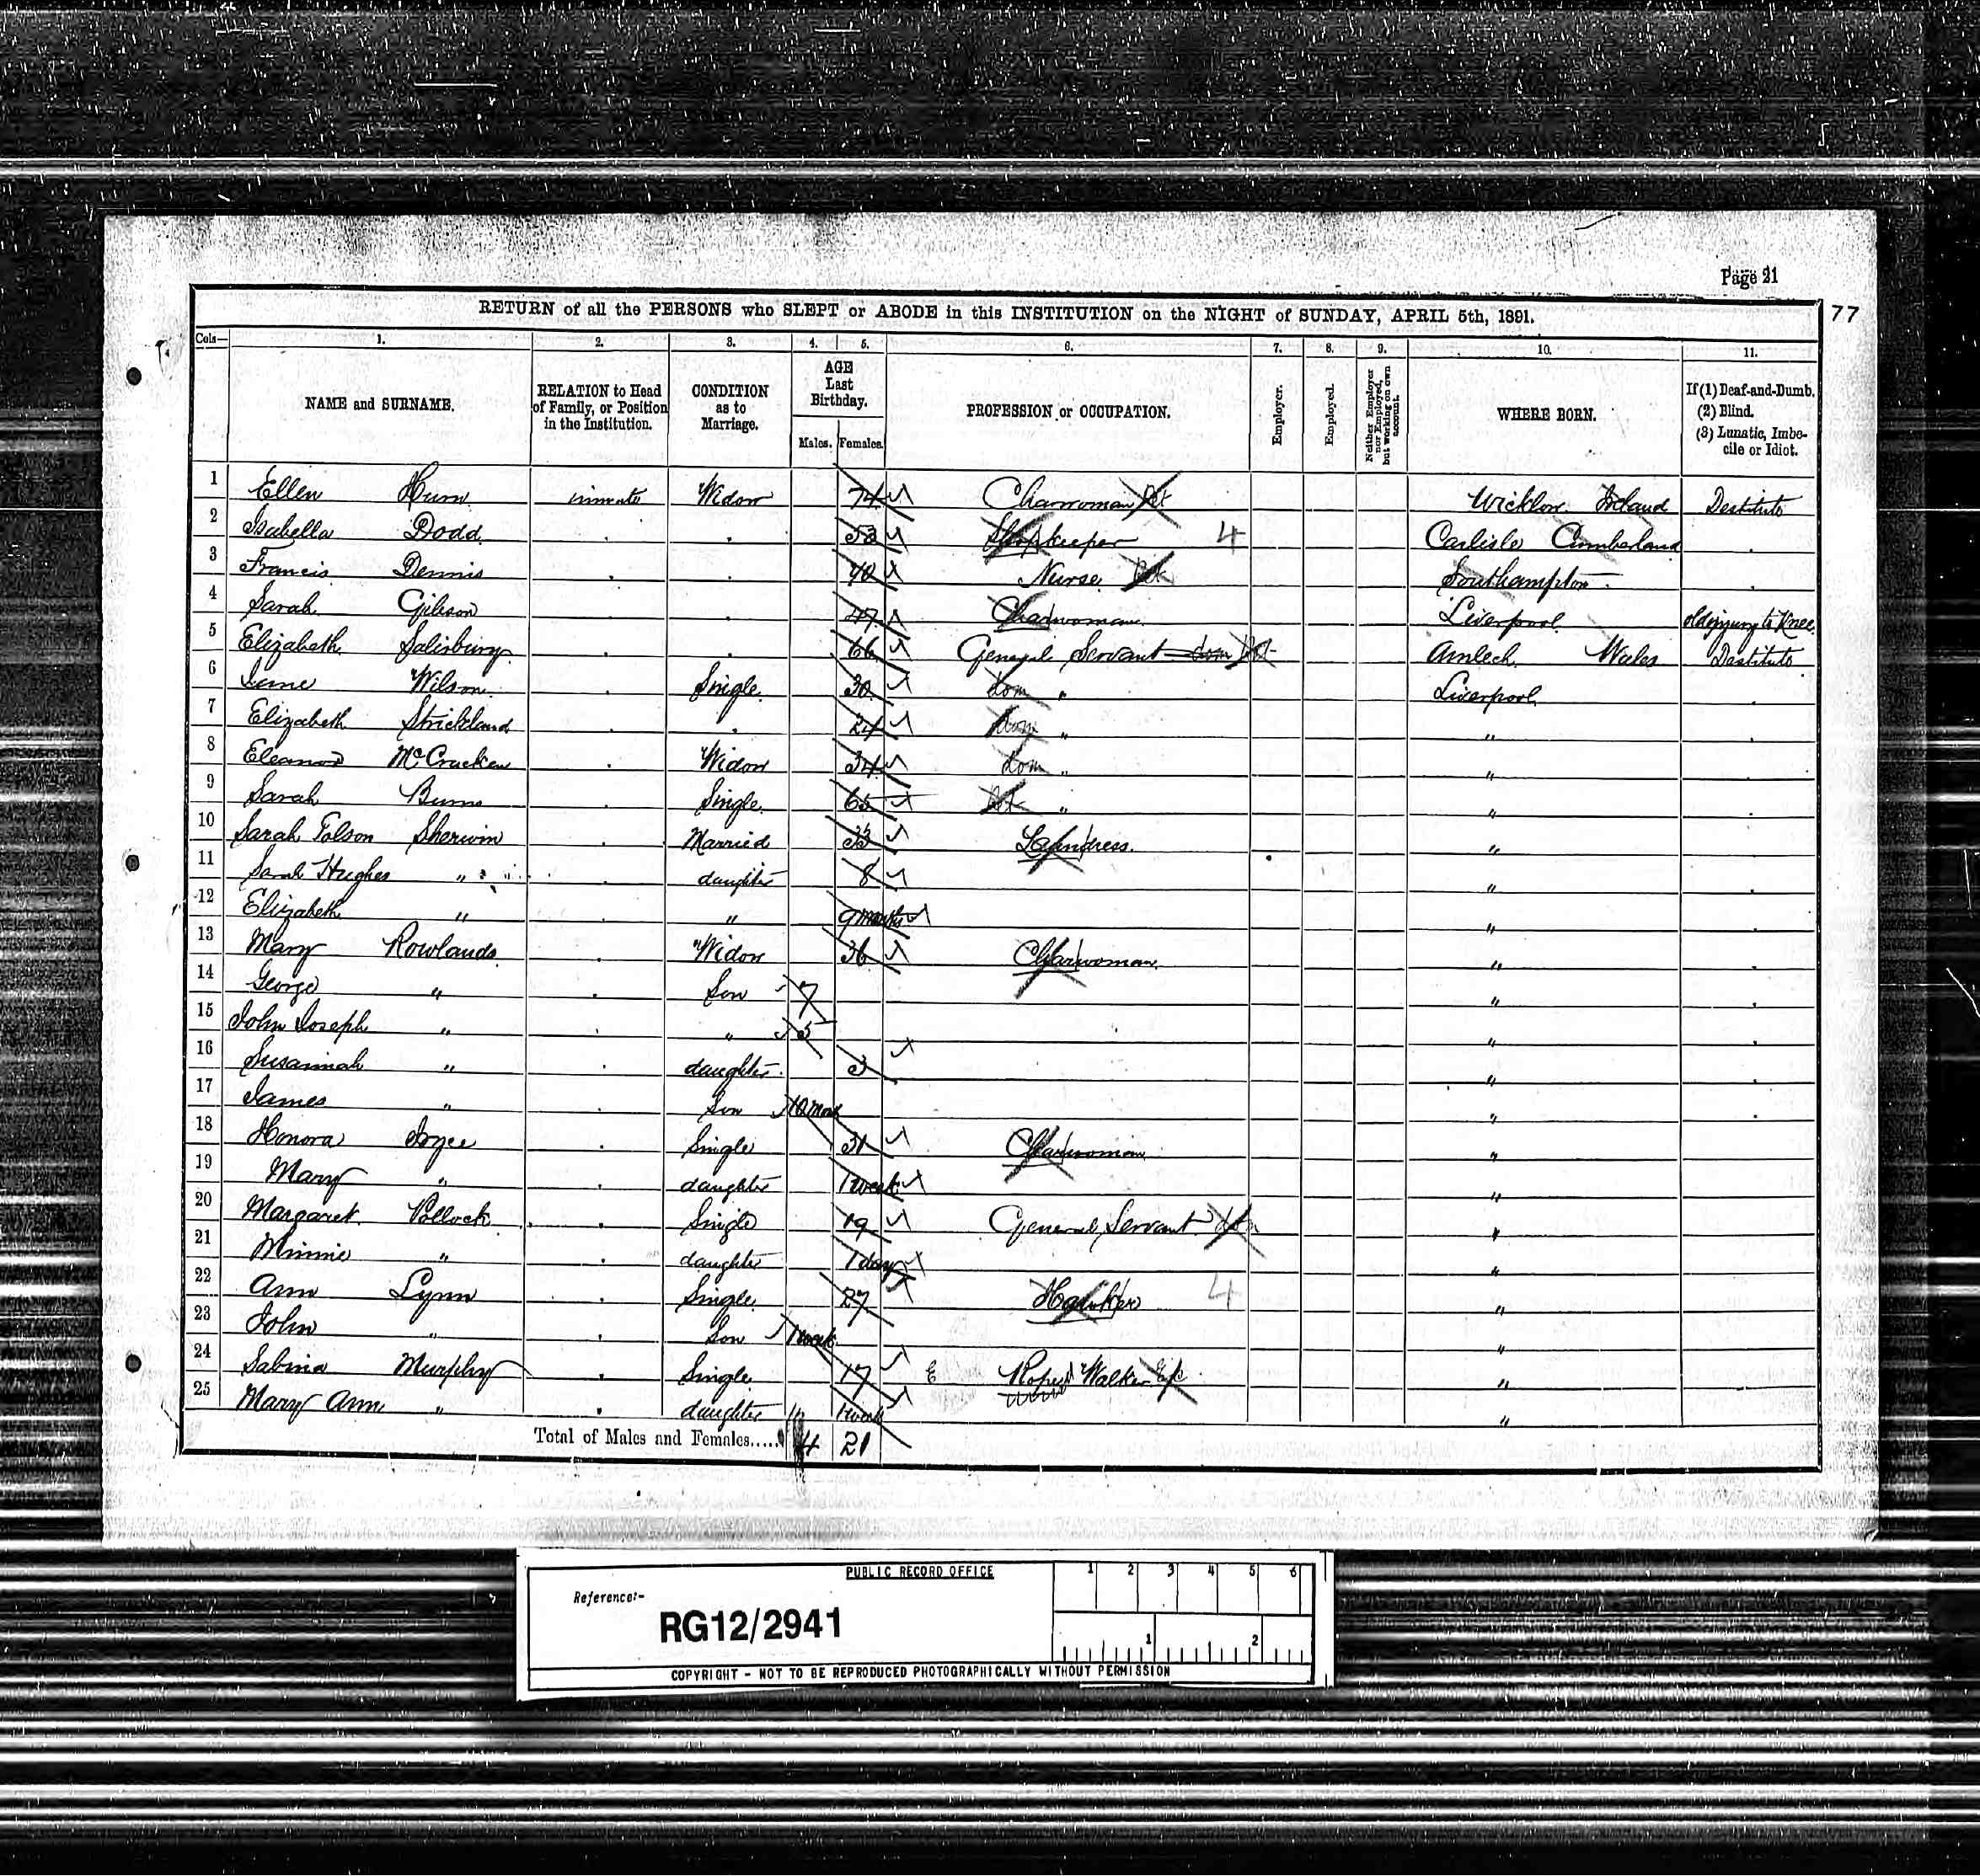 Page 21
77
RETURN of all the PERSONS who SLEPT or ABODE in this INSTITUTION on the NIGHT of SUNDAY, APRIL 5th, 1891.
Cols— 1. 2. 3. 4. 5. 6. 7. 8. 9. 10. 11.
NAME and SURNAME. RELATION to Head of Family, or Position in the Institution. CONDITION as to Marriage. AGE Last Birthday. Males. Females. PROFESSION or OCCUPATION. Employer. Employed. Neither Employer nor Employed, but working on own account. WHERE BORN. If (1) Deaf-and-Dumb. (2) Blind. (3) Lunatic, Imbecile or Idiot.
1 Ellen inmate Widow 74 Charwoman Ret Wicklow Ireland Destitute
2 Isabella Dodd . . 53 Shopkeeper 4 Carlisle Cumberland .
3 Francis Dennis . . 70 Nurse Ret Southampton .
4 Sarah Gibson . . 47 Charwoman Liverpool old injury to Knee
5 Elizabeth Salisbury . . 66 General Servant Amlech Wales Destitute
6 Jane Wilson . Single 30 Dom " Liverpool .
7 Elizabeth Strickland . . 24 Dom " " .
8 Eleanor McCracken . Widow 34 Dom " " .
9 Sarah Burns . Single 65 Ret " " .
10 Sarah Tolson Sherwin . Married 33 Laundress " .
11 Sarah Hughes " . daughter 8 " .
12 Elizabeth " . " 9 months " .
13 Mary Rowlands . Widow 36 Charwoman " .
14 George " . Son 7 " .
15 John Joseph " . " 5 " .
16 Susannah " . daughter 3 " .
17 James " . Son 10 mon " .
18 Honora Joyce . Single 31 Charwoman "
19 Mary " . daughter 1 week "
20 Margaret Pollock . Single 19 General Servant Dom "
21 Minnie " . daughter 1 day "
22 Ann Lynn . Single 27 Hawker 4 "
23 John " . Son 1 week "
24 Sabina Murphy . Single 17 E Rope Walker "
25 Mary Ann " . daughter 1 week "
Total of Males and Females..... 4 21
PUBLIC RECORD OFFICE
Reference:-
RG12/2941
1 2 3 4 5 6
1 2
COPYRIGHT - NOT TO BE REPRODUCED PHOTOGRAPHICALLY WITHOUT PERMISSION